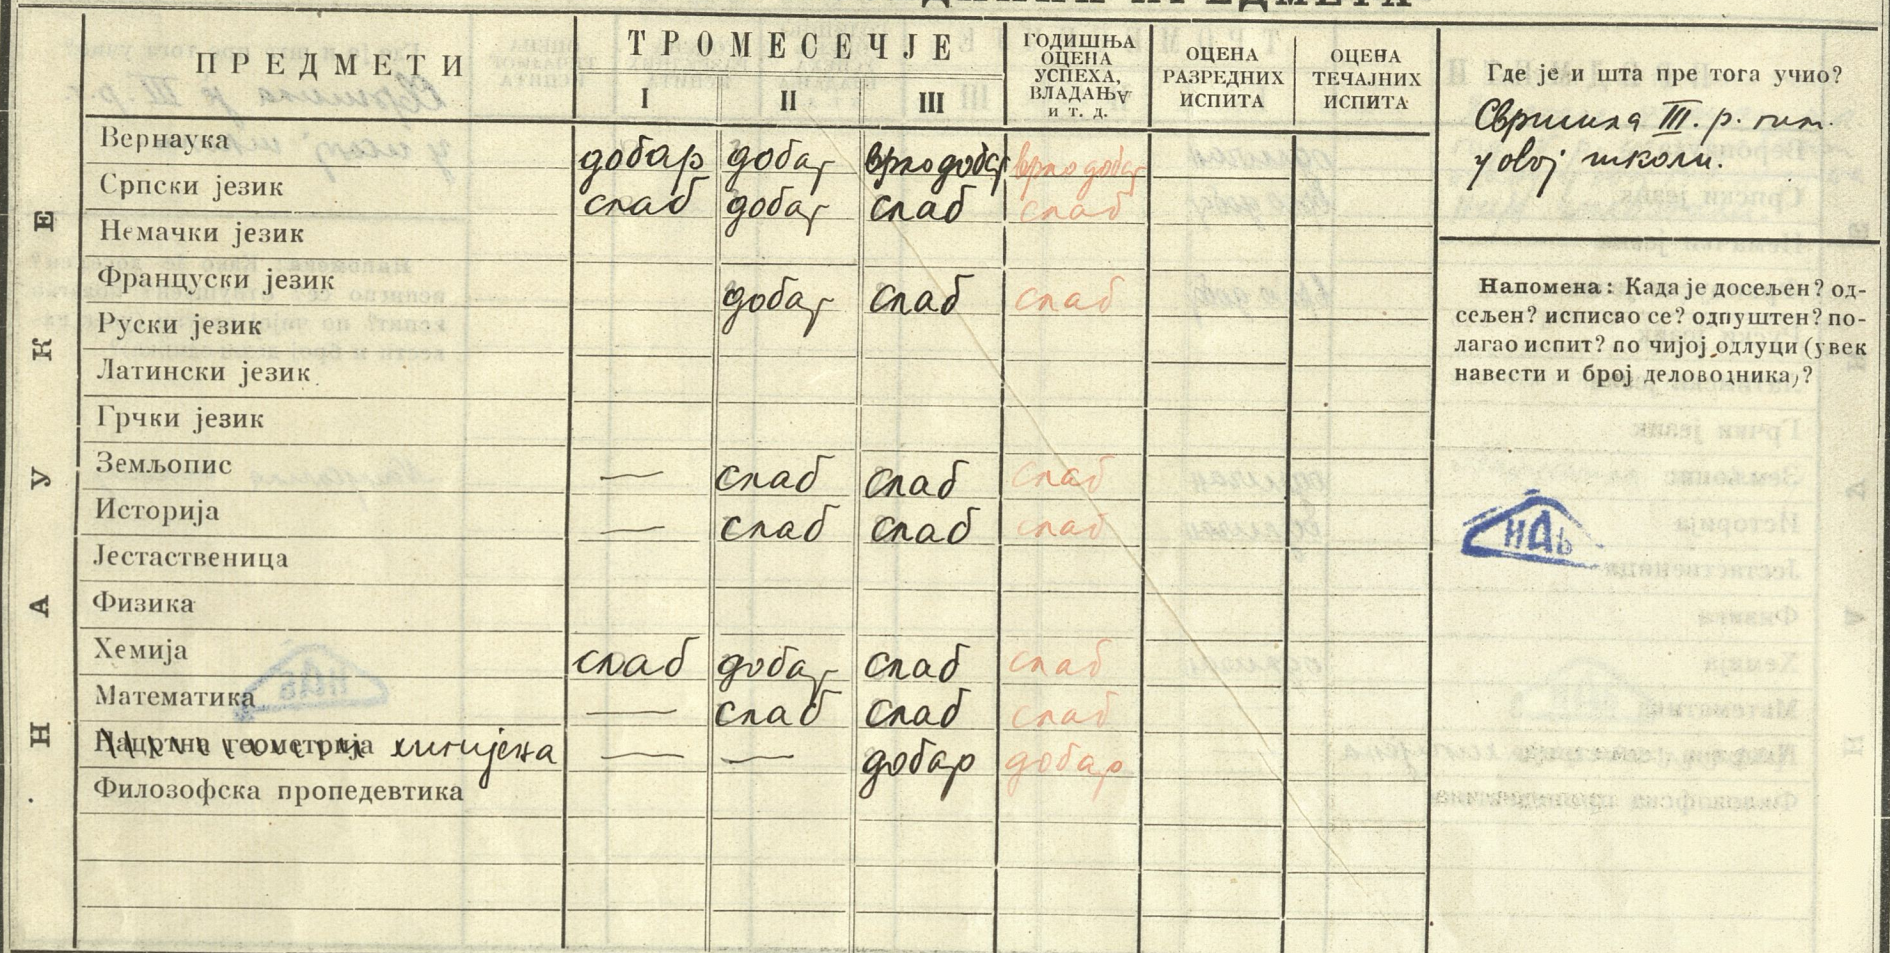 ПРЕДМЕТИ
ТРОМЕСЕЧЈЕ
I II III
ГОДИШЊА
ОЦЕНА
УСПЕХА,
ВЛАДАЊА
и т. д.
ОЦЕНА
РАЗРЕДНИХ
ИСПИТА
ОЦЕНА
ТЕЧАЈНИХ
ИСПИТА
НАУКЕ
Вернаука добар добар врло добар врло добар
Српски језик слаб добар слаб слаб
Немачки језик
Француски језик добар слаб слаб
Руски језик
Латински језик
Грчки језик
Земљопис — слаб слаб слаб
Историја — слаб слаб слаб
Јестаственица
Физика
Хемија слаб добар слаб слаб
Математика — слаб слаб слаб
Нацртна геометрија хигијена — — добар добар
Филозофска пропедевтика
Где је и шта пре тога учио?
Свршила III. р. гим.
у овој школи.
Напомена: Када је досељен? од-
сељен? исписао се? одпуштен? по-
лагао испит? по чијој одлуци (увек
навести и број деловодника)?
НАЬ